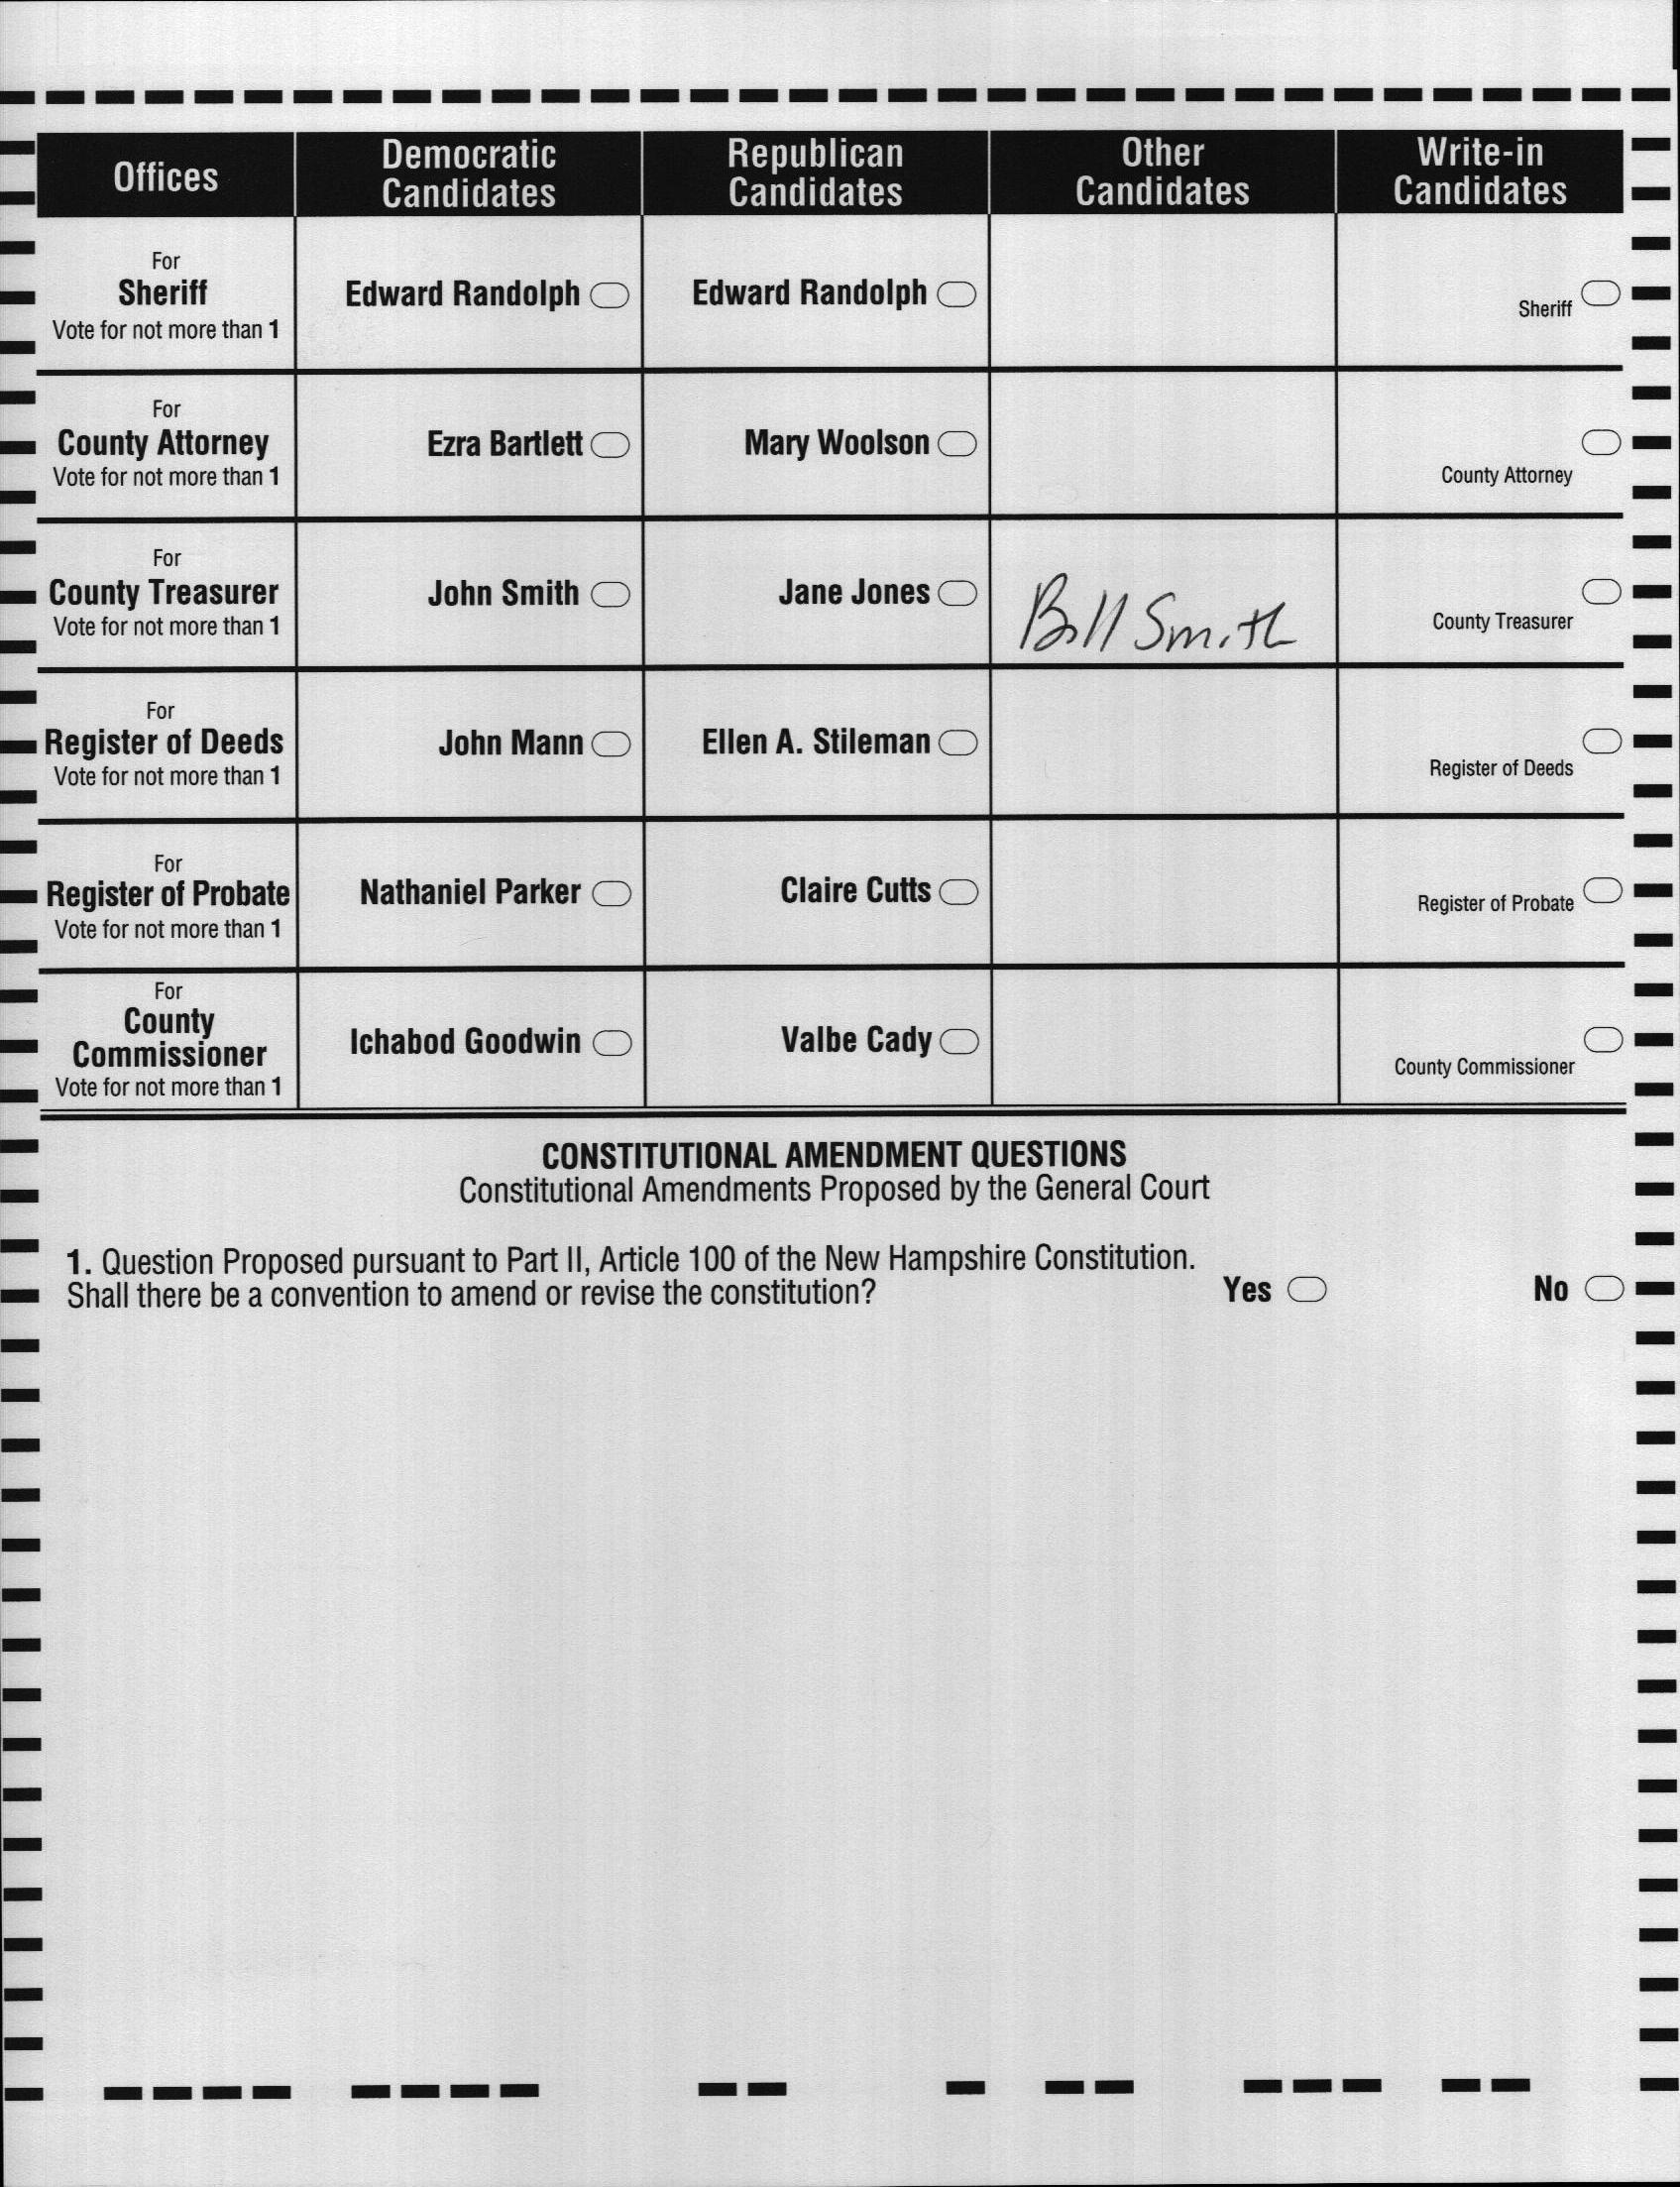 Offices
Democratic
Candidates
Republican
Candidates
Other
Candidates
Write-in
Candidates
For
Sheriff
Vote for not more than 1
Edward Randolph
Edward Randolph
Sheriff
For
County Attorney
Vote for not more than 1
Ezra Bartlett
Mary Woolson
County Attorney
For
County Treasurer
Vote for not more than 1
John Smith
Jane Jones
Bill Smith
County Treasurer
For
Register of Deeds
Vote for not more than 1
John Mann
Ellen A. Stileman
Register of Deeds
For
Register of Probate
Vote for not more than 1
Nathaniel Parker
Claire Cutts
Register of Probate
For
County
Commissioner
Vote for not more than 1
Ichabod Goodwin
Valbe Cady
County Commissioner
CONSTITUTIONAL AMENDMENT QUESTIONS
Constitutional Amendments Proposed by the General Court
1. Question Proposed pursuant to Part II, Article 100 of the New Hampshire Constitution.
Shall there be a convention to amend or revise the constitution?
Yes
No